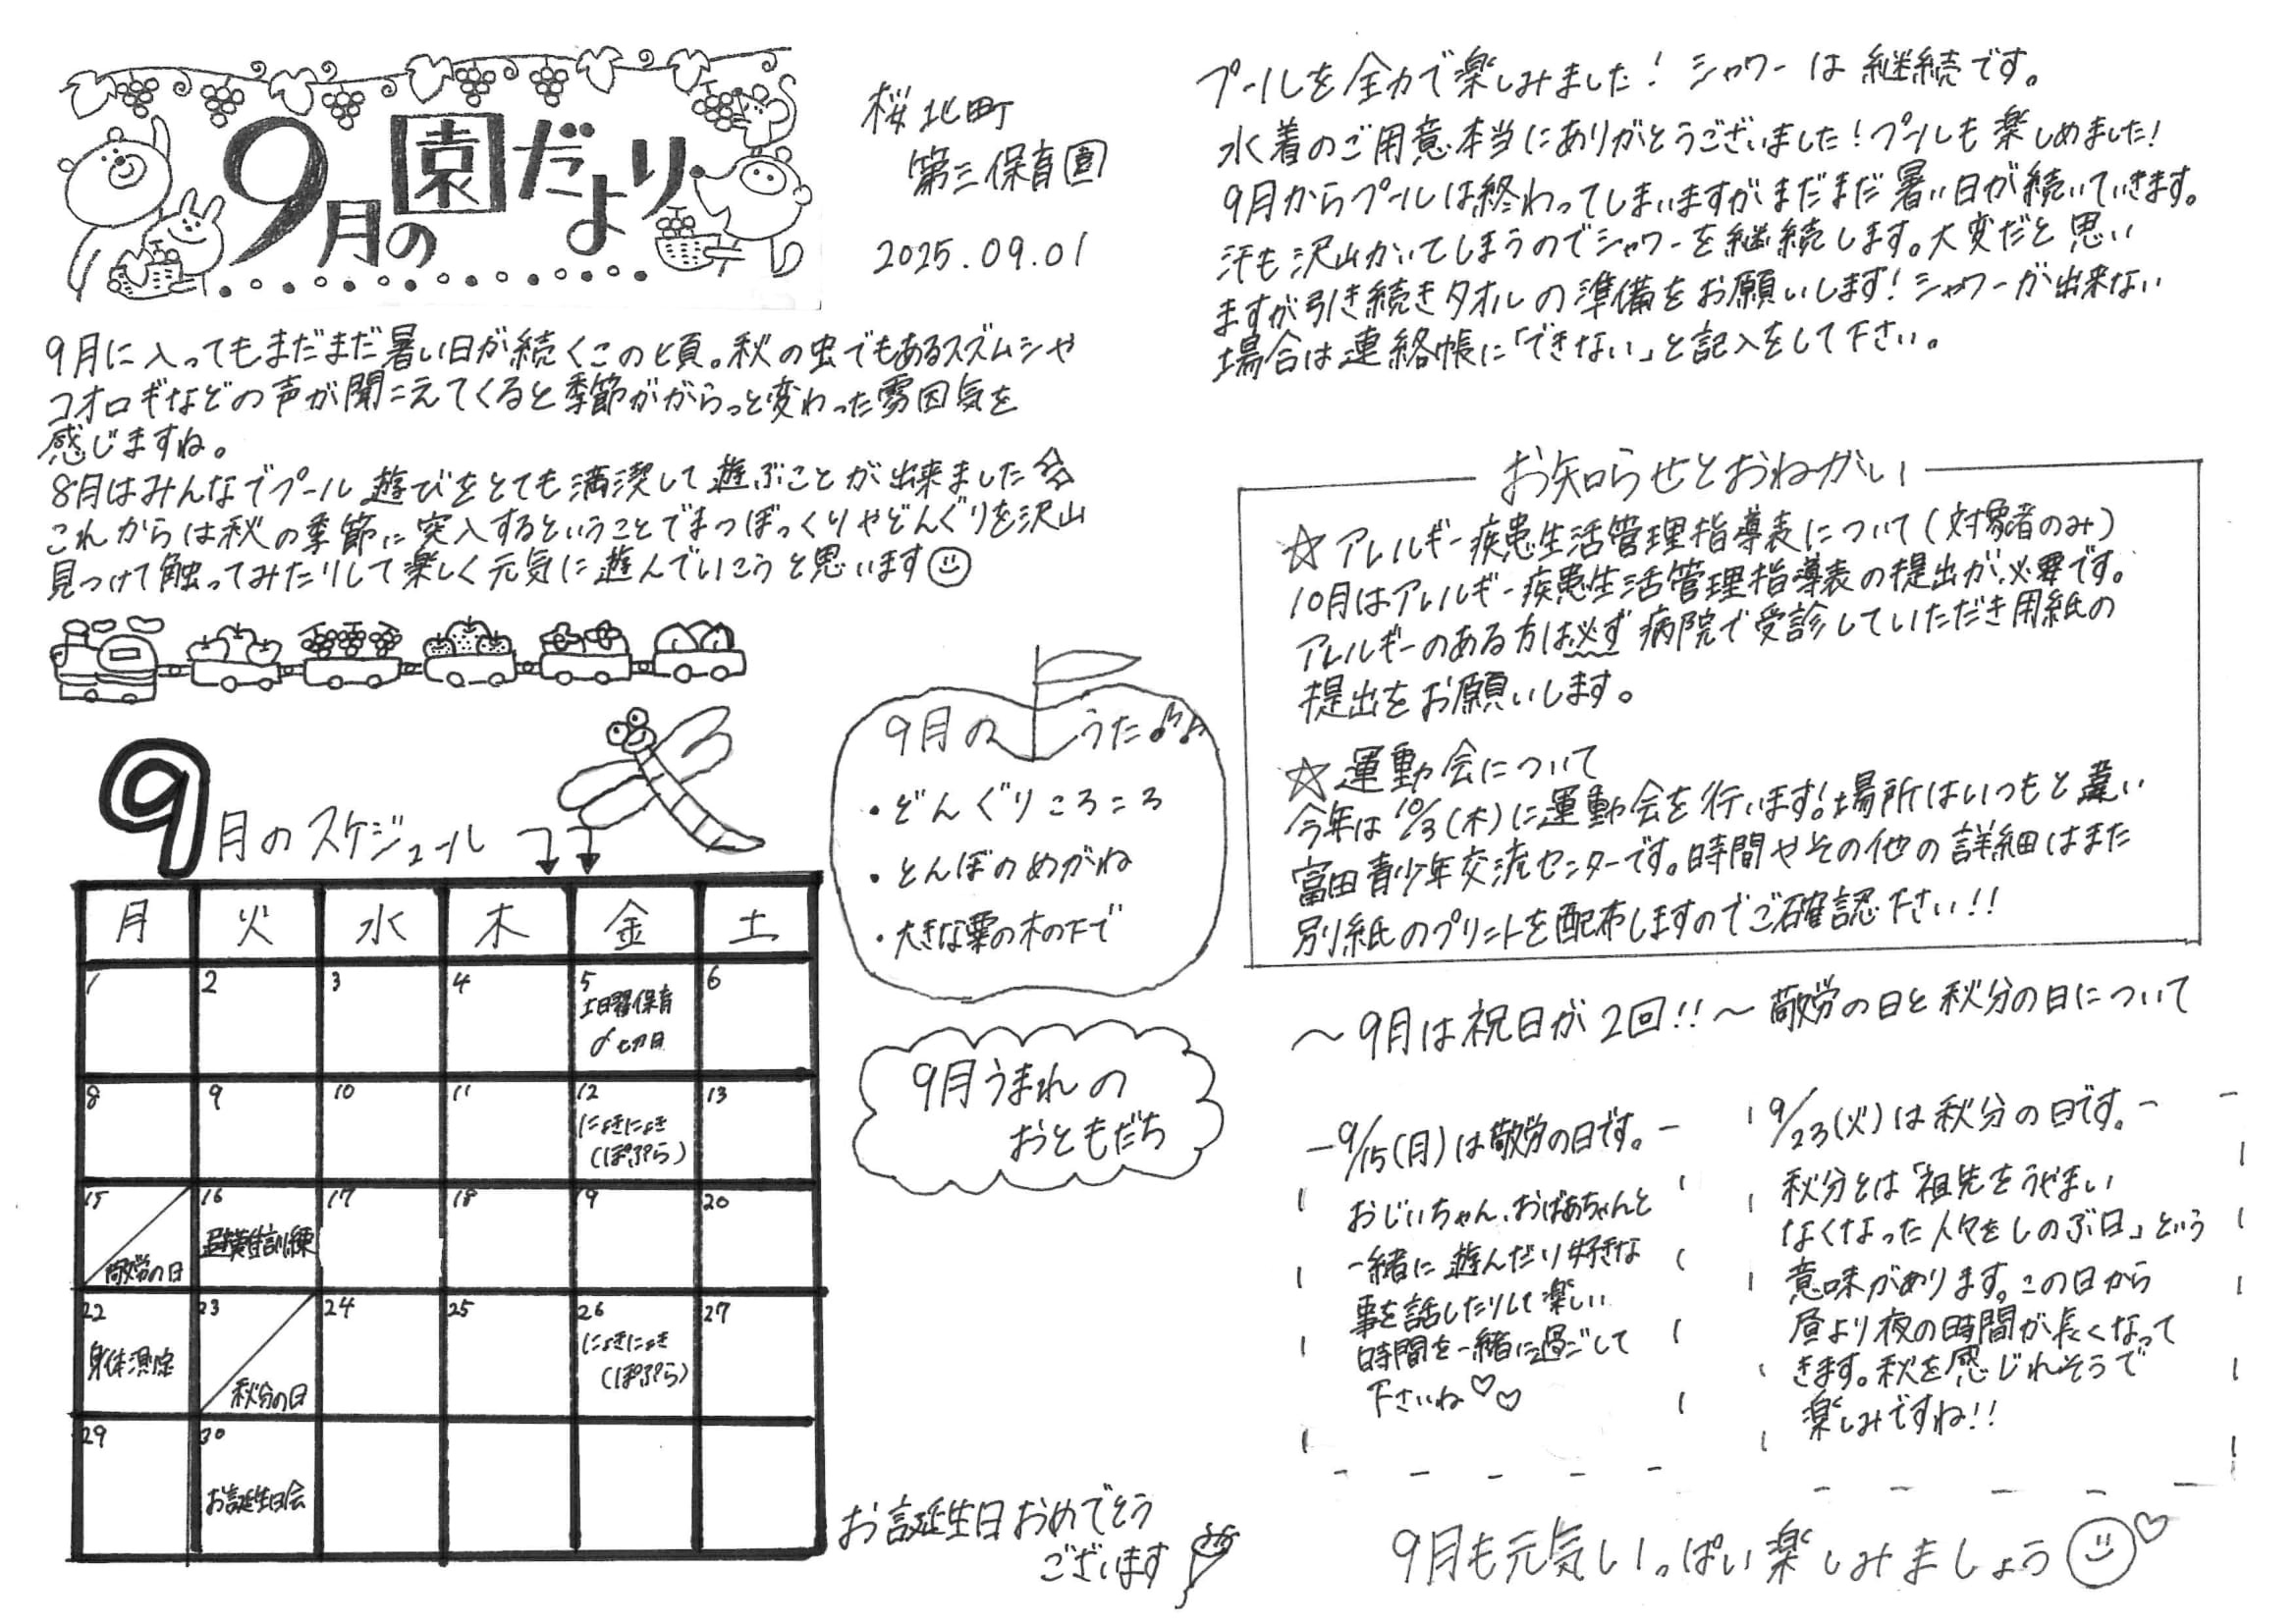 9月の園だより
桜北町
第三保育園
2025.09.01
9月に入ってもまだまだ暑い日が続くこの頃。秋の虫でもあるスズムシや
コオロギなどの声が聞こえてくると季節ががらっと変わった雰囲気を
感じますね。
8月はみんなでプール遊びをとても満喫して遊ぶことが出来ました☆
これからは秋の季節に突入するということでまつぼっくりやどんぐりを沢山
見つけて触ってみたりして楽しく元気に遊んでいこうと思います☺
9月のスケジュール
月 火 水 木 金 土
1 2 3 4 5 6
土曜保育
〆切日
8 9 10 11 12 13
にょきにょき
(ぽぷら)
15 16 17 18 19 20
敬労の日
避難訓練
22 23 24 25 26 27
身体測定
秋分の日
にょきにょき
(ぽぷら)
29 30
お誕生日会
9月のうた♪♫
・どんぐりころころ
・とんぼのめがね
・大きな栗の木の下で
9月うまれの
おともだち
お誕生日おめでとう
ございます
プールを全力で楽しみました！シャワーは継続です。
水着のご用意本当にありがとうございました！プールも楽しめました！
9月からプールは終わってしまいますがまだまだ暑い日が続いていきます。
汗も沢山かいてしまうのでシャワーを継続します。大変だと思い
ますが引き続きタオルの準備をお願いします！シャワーが出来ない
場合は連絡帳に「できない」と記入をして下さい。
お知らせとおねがい
☆アレルギー疾患生活管理指導表について(対象者のみ)
10月はアレルギー疾患生活管理指導表の提出が必要です。
アレルギーのある方は必ず病院で受診していただき用紙の
提出をお願いします。
☆運動会について
今年は10/3(木)に運動会を行います！場所はいつもと違い
富田青少年交流センターです。時間やその他の詳細はまた
別紙のプリントを配布しますのでご確認下さい！！
～9月は祝日が2回！！～敬労の日と秋分の日について
9/15(月)は敬労の日です。
おじいちゃん、おばあちゃんと
一緒に遊んだり好きな
事を話したりして楽しい
時間を一緒に過ごして
下さいね♡♡
9/23(火)は秋分の日です。
秋分とは「祖先をうやまい
なくなった人々をしのぶ日」という
意味があります。この日から
昼より夜の時間が長くなって
きます。秋を感じれそうで
楽しみですね！！
9月も元気いっぱい楽しみましょう☺♡